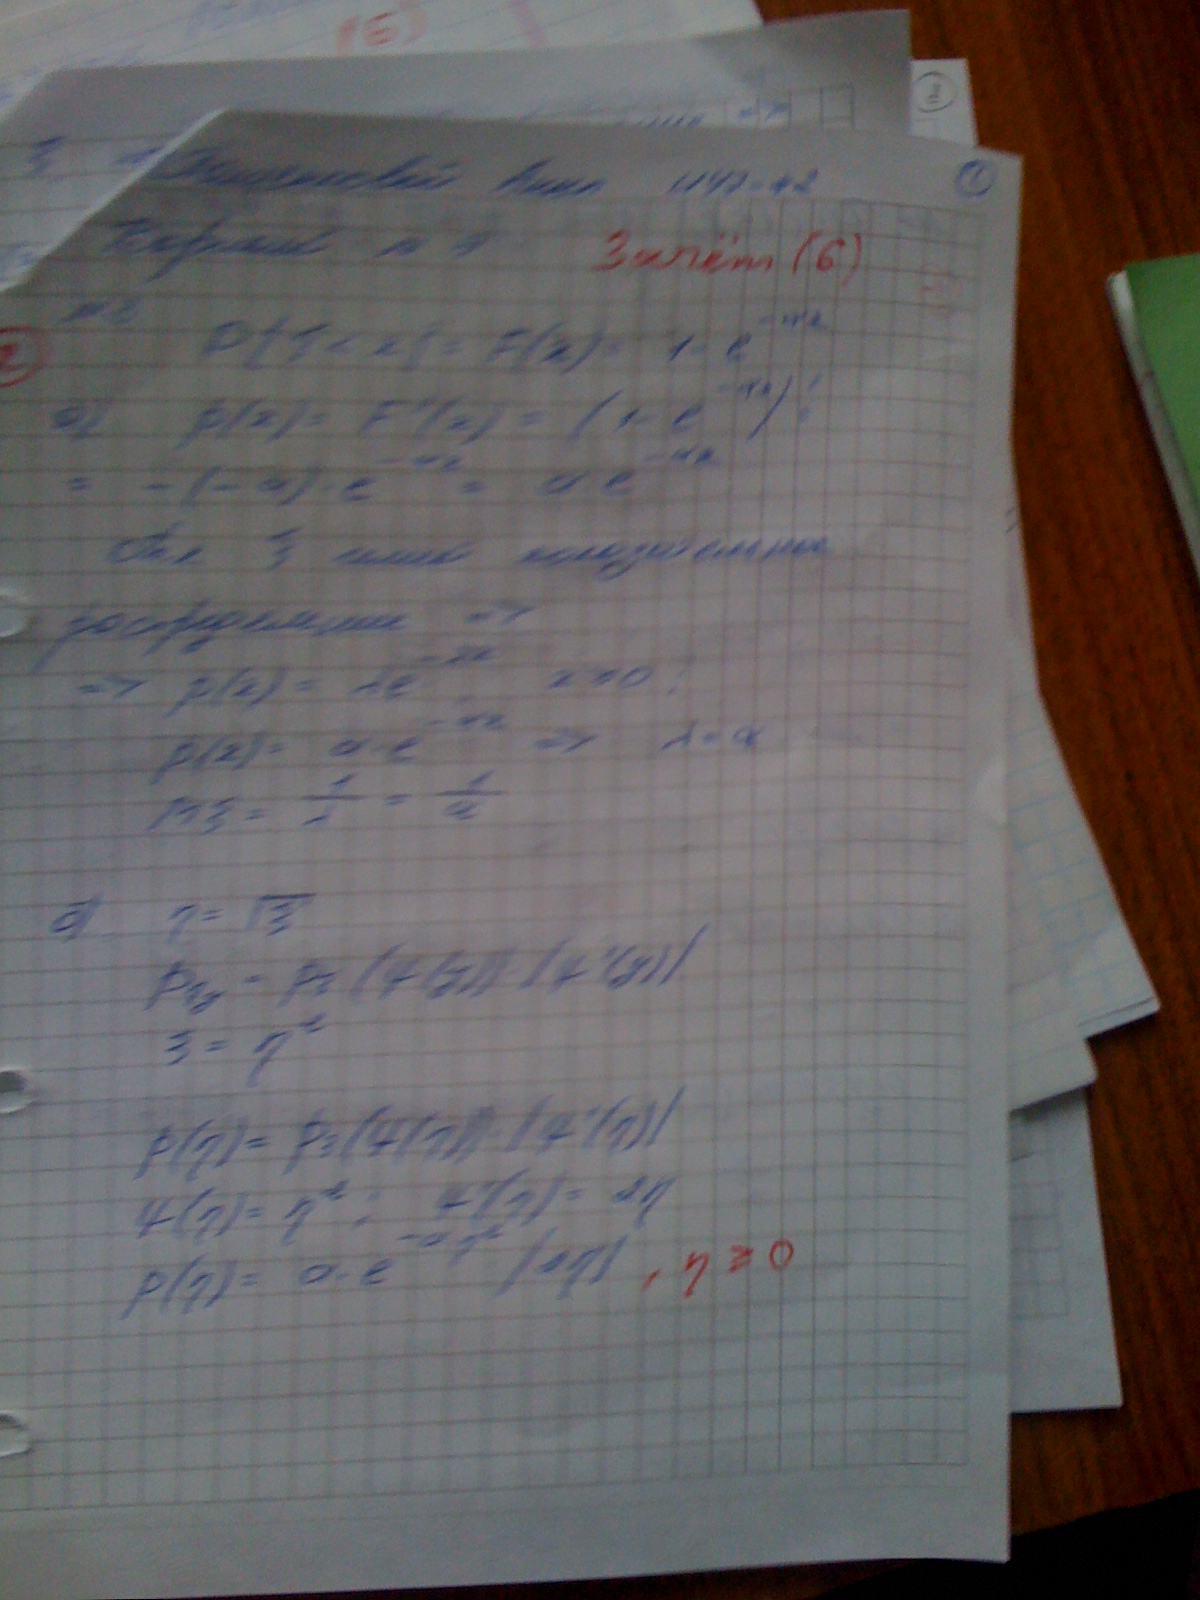 ①
Вариант № 1
Зачёт (6)
№ 3
2
P{ξ < x} = F(x) = 1 - e^{-ax}
а) p(x) = F'(x) = (1 - e^{-ax})' =
= -(-a) · e^{-ax} = a e^{-ax}
ξ имеет показательное
распределение =>
=> p(x) = λe^{-λx}, x ≥ 0;
p(x) = a · e^{-ax} => λ = a
Mξ = 1/λ = 1/a
б) η = √ξ
p_{η} = p_{ξ}(ψ(y)) · |ψ'(y)|
ξ = η²
p(η) = p_ξ(ψ(η)) · |ψ'(η)|
ψ(η) = η²; ψ'(η) = 2η
p(η) = a · e^{-aη²} |2η|, η ≥ 0